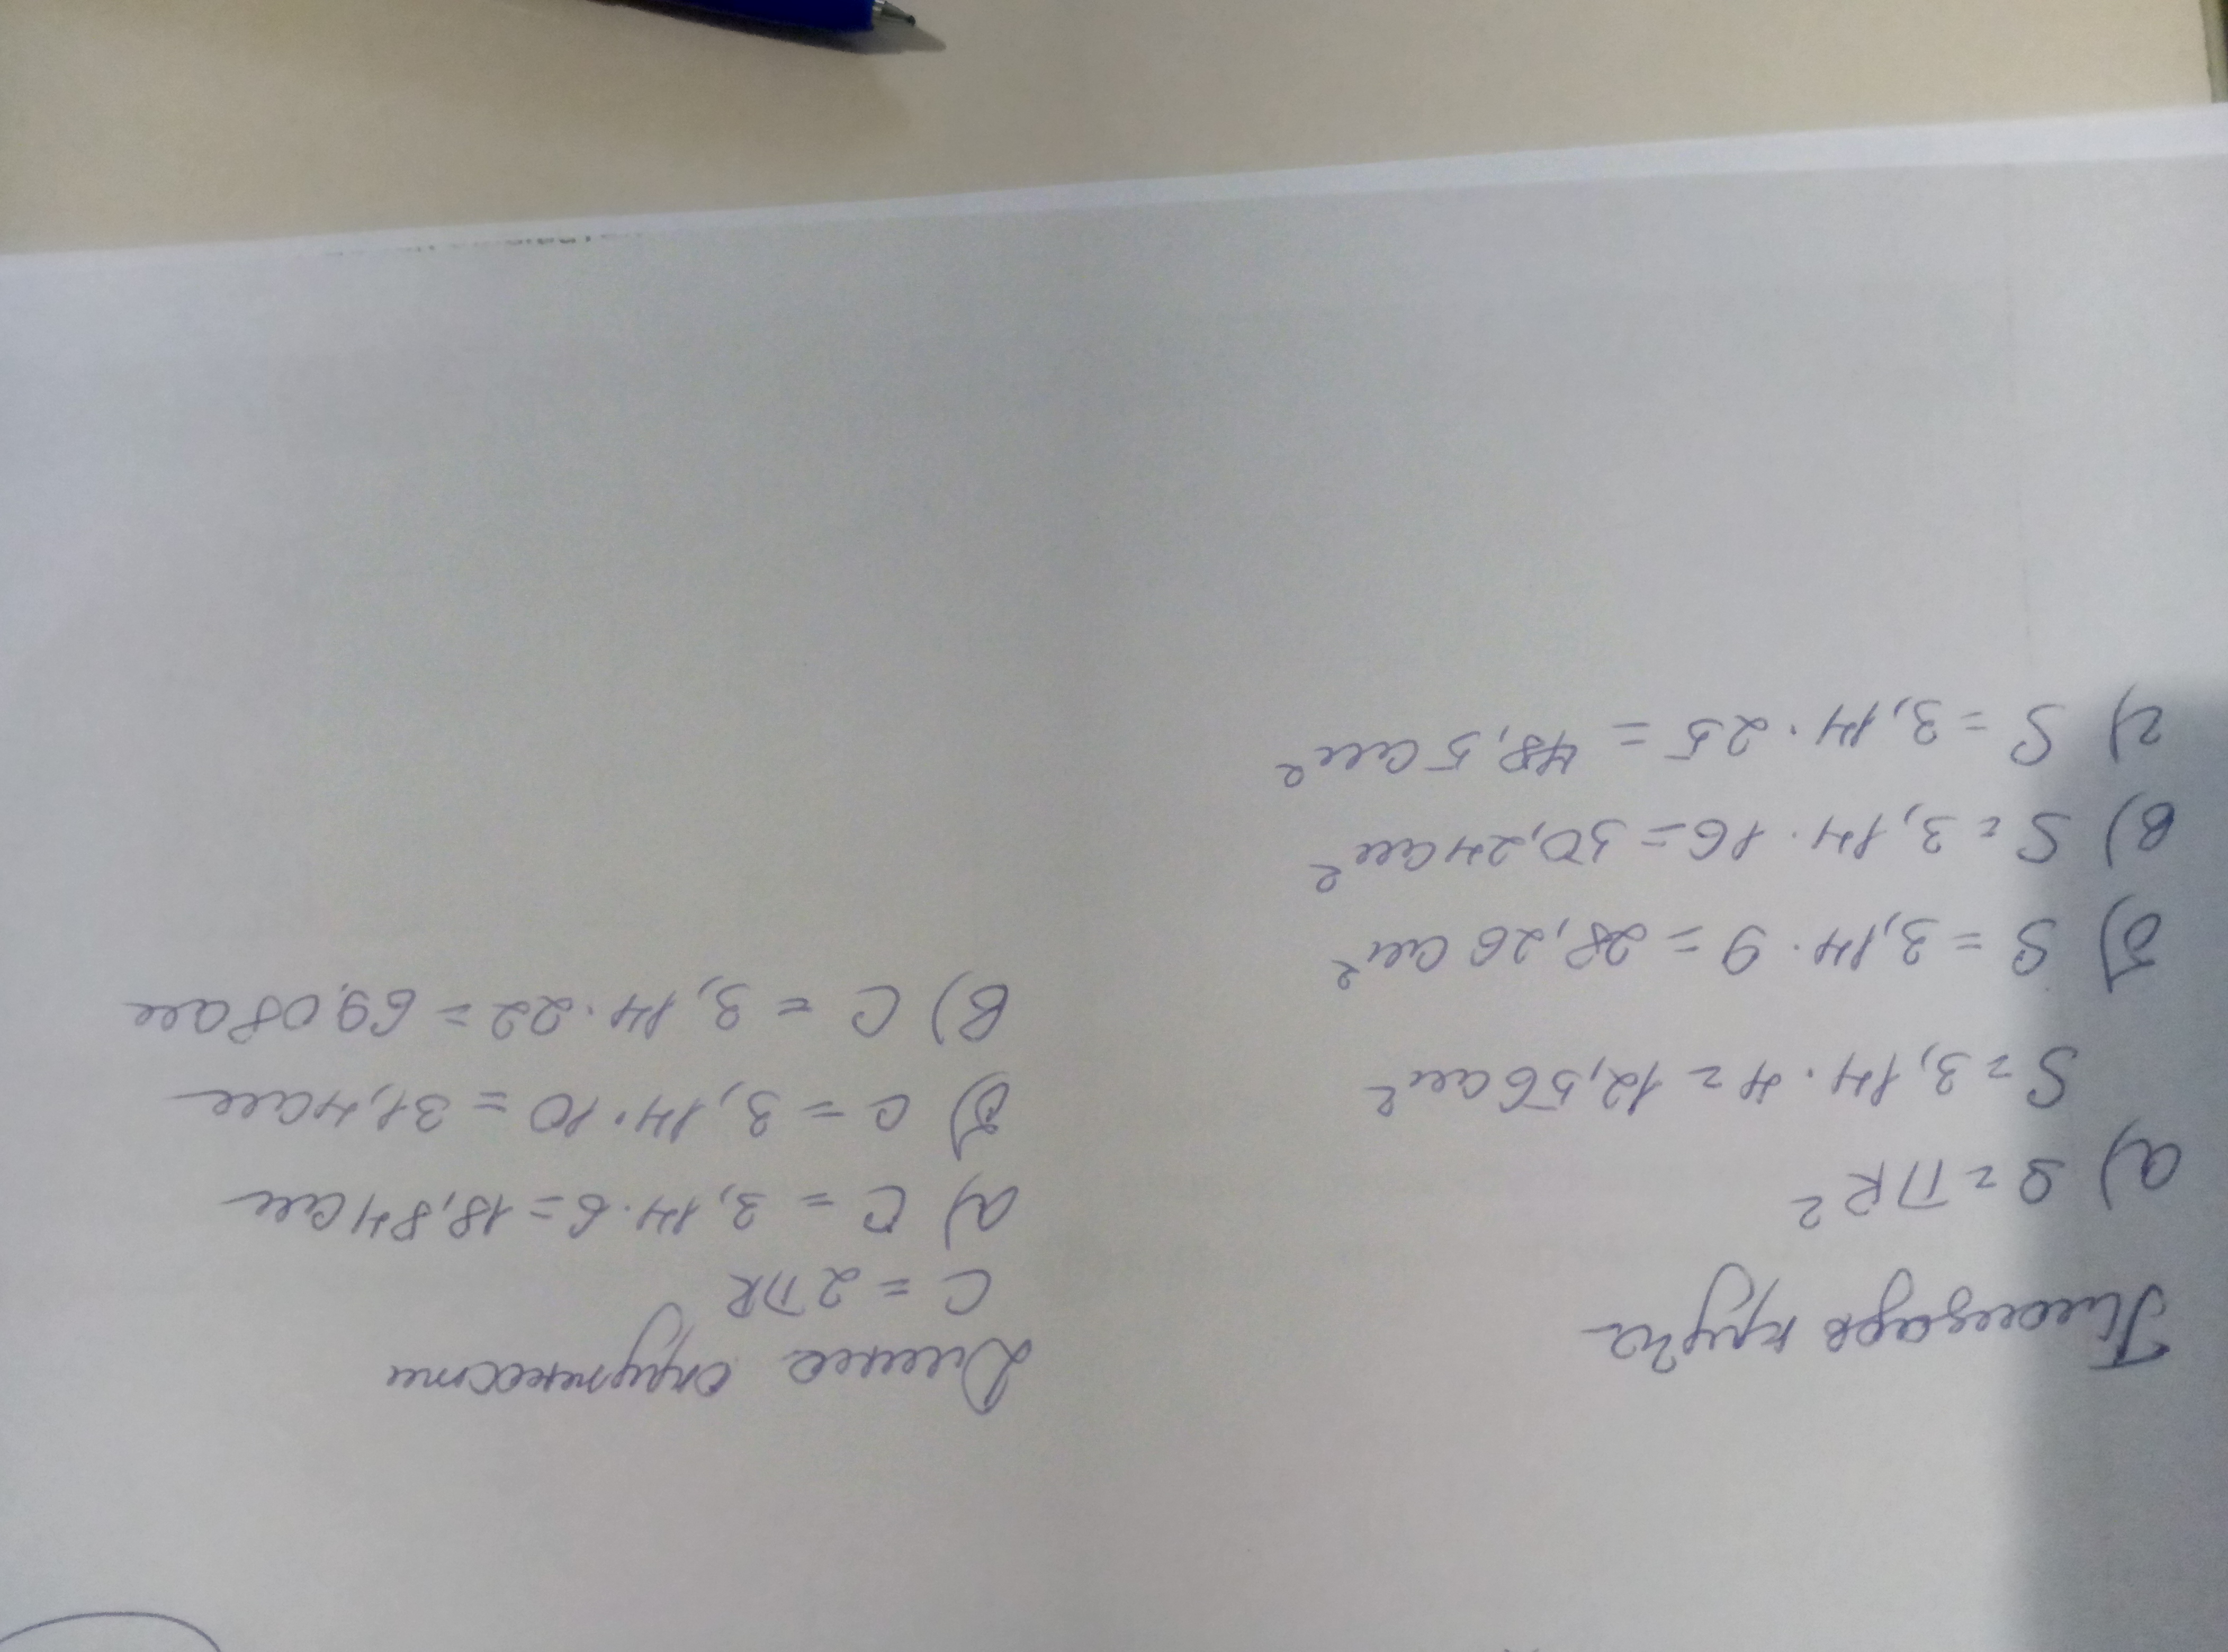 Площадь круга
а) S = ПR²
S = 3,14 · 4 = 12,56 см²
б) S = 3,14 · 9 = 28,26 см²
в) S = 3,14 · 16 = 50,24 см²
г) S = 3,14 · 25 = 48,5 см²
Длина окружности
C = 2ПR
а) C = 3,14 · 6 = 18,84 см
б) C = 3,14 · 10 = 31,4 см
в) C = 3,14 · 22 = 69,08 см